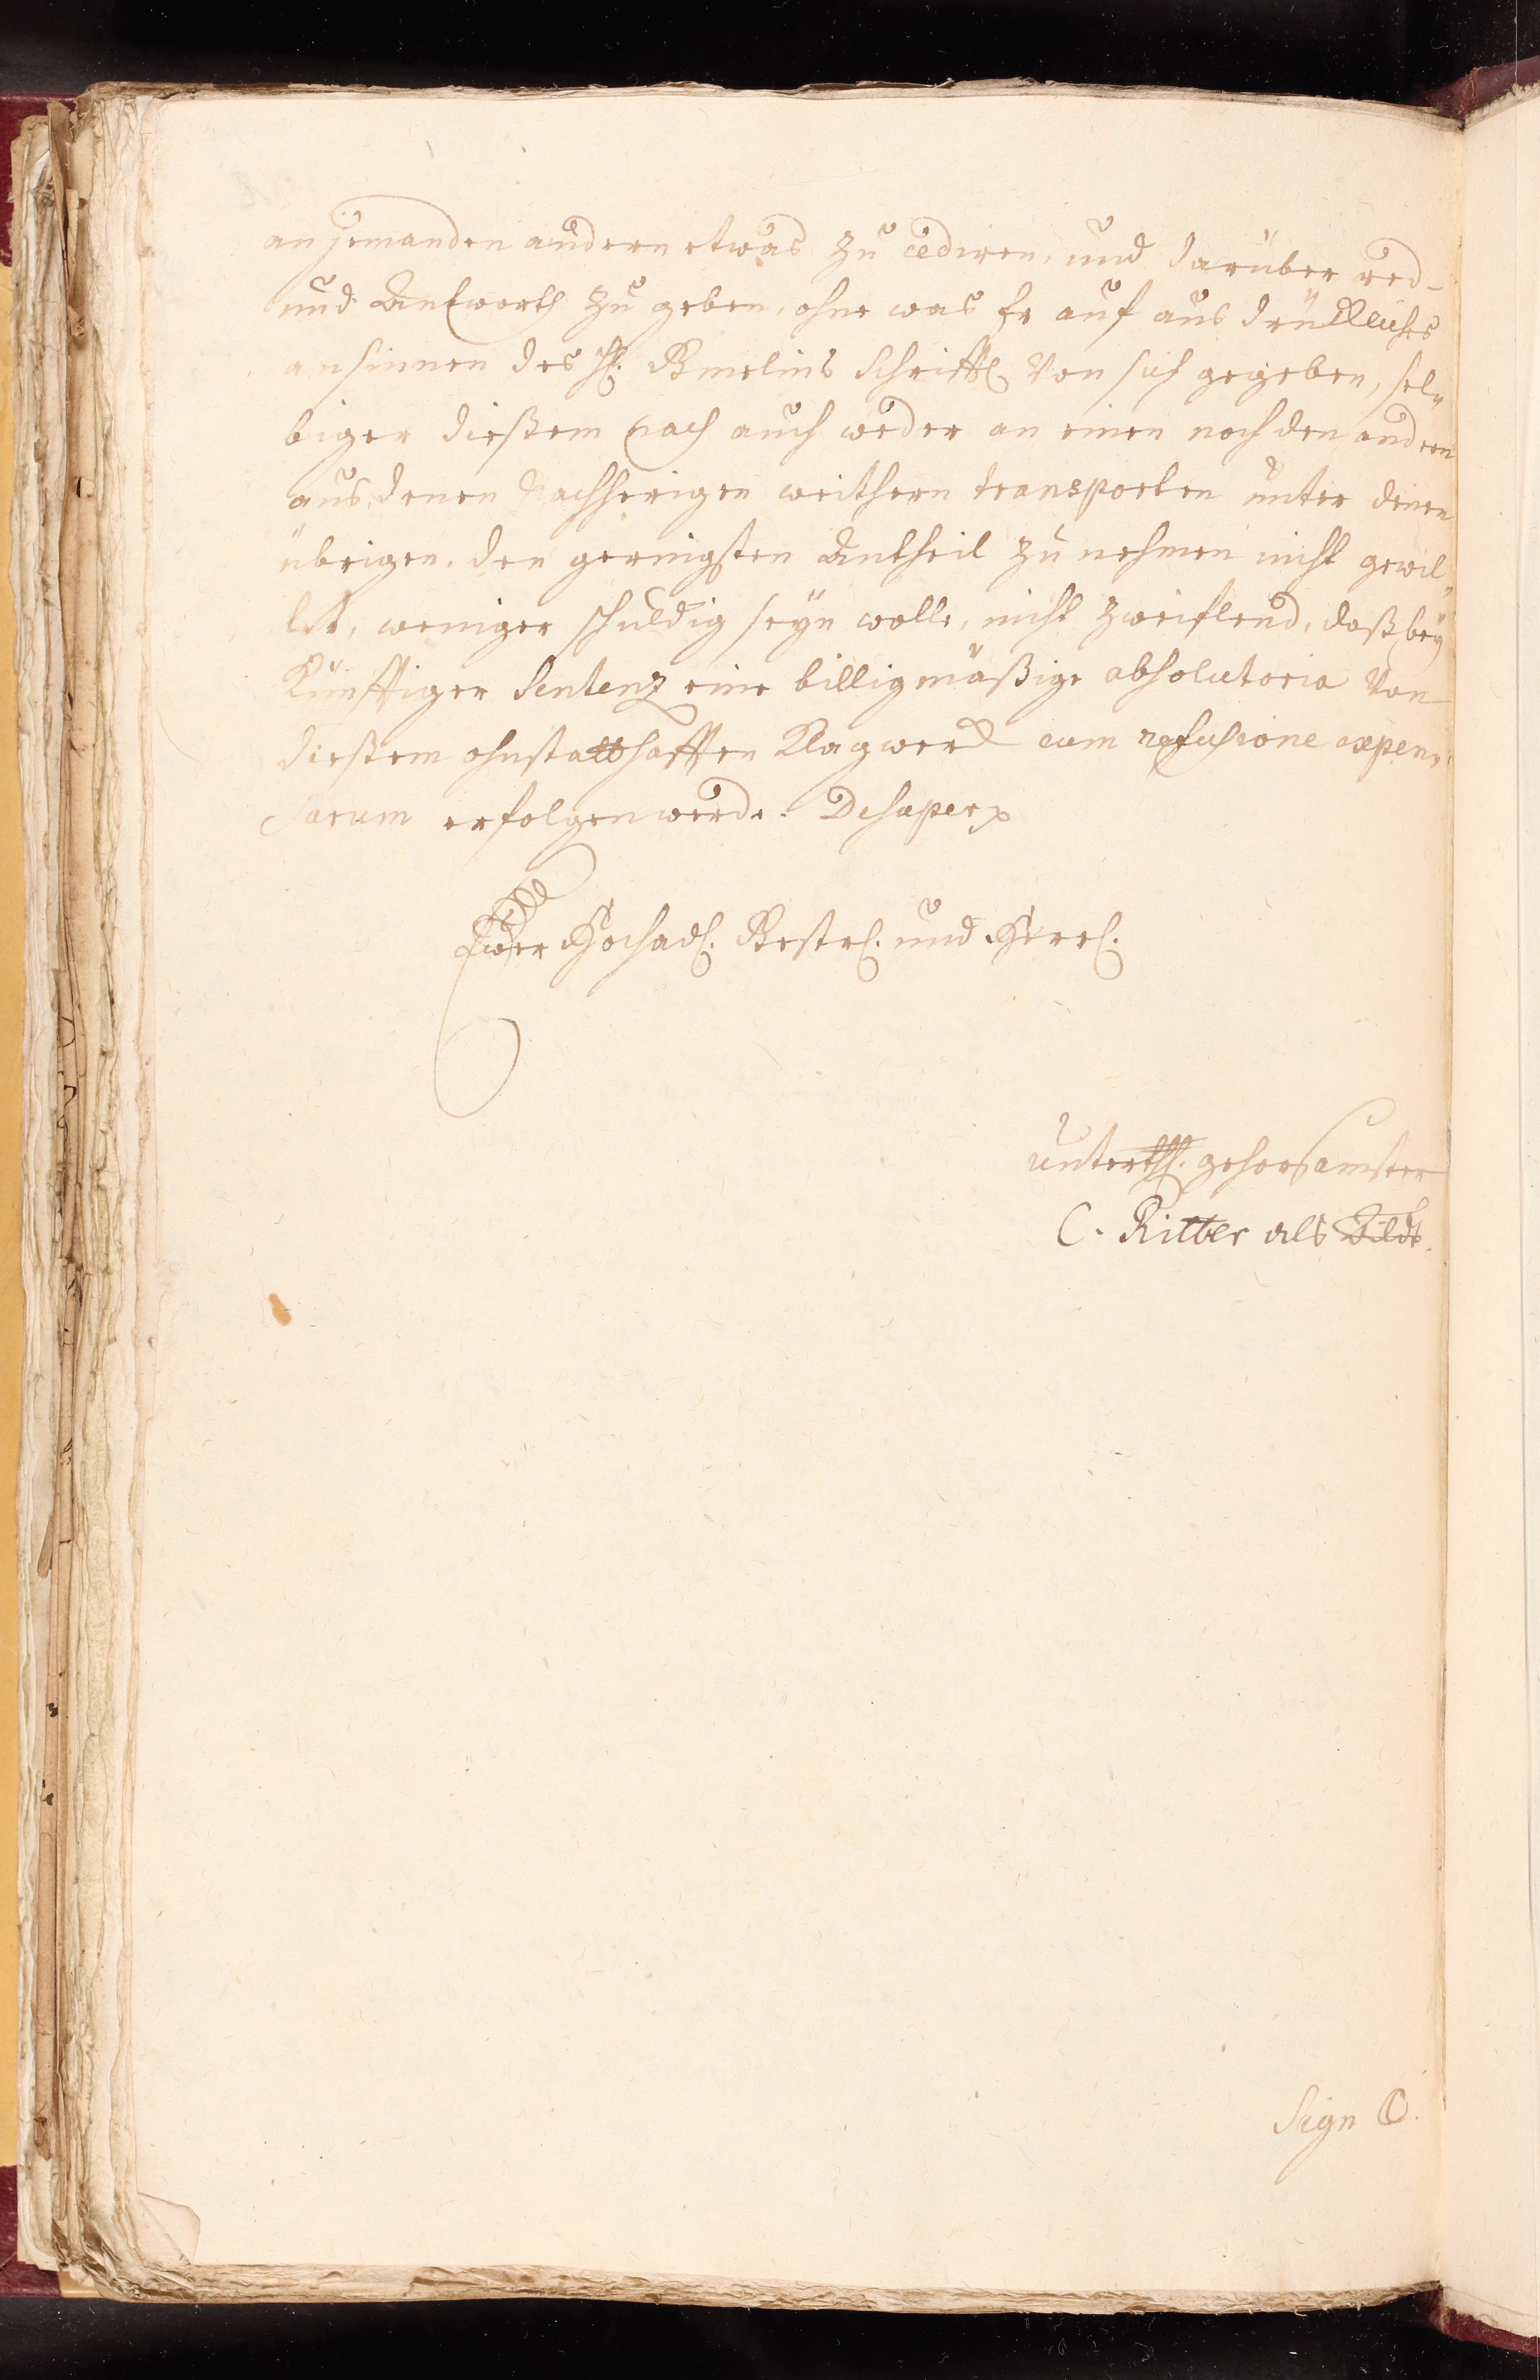 an jemanden andern etwas zu cediren, und darüber red-
und Antworth zu geben, ohne was Er auf ausdrükliches
ansinnen des H. Gmelins schrifftl. von sich gegeben, sel„
biger dießem nach auch weder an einen noch den andern
aus denen Nachherigen weithern transporten unter denen
übrigen, den geringsten Antheil zu nehmen nicht gewil„
let, weniger schuldig seyn wolle, nicht zweiflend, daß bey
Künfftiger Sentenz eine billigmäßige absolutoria von
dießem ohnstatthafften Klagwerck cum refusione expen„
sarum erfolgen werde. Desuper
Ewer Hochadl. Gestrl. und Herrl.
unterth. gehorsamster
C. Ritter als
Sign C.